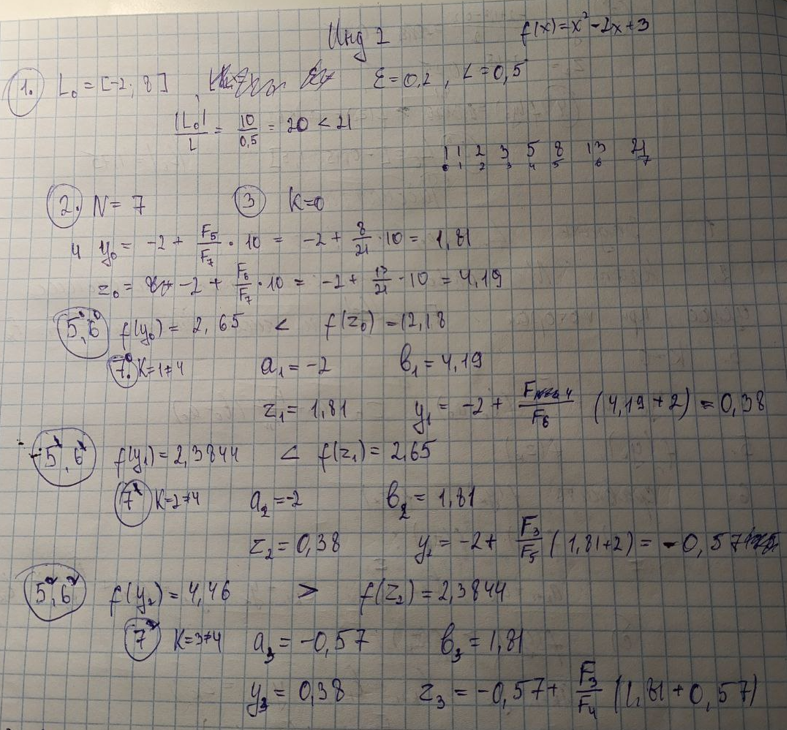 Инд 2 f(x)=x²-2x+3
1. L₀=[-2; 8], ε=0,2, L=0,5
|L₀|/L = 10/0,5 = 20 < 21
1 1 2 3 5 8 13 21
0 1 2 3 4 5 6 7
2. N=7 3 K=0
4 y₀ = -2 + F₅/F₇ · 10 = -2 + 8/21 · 10 = 1,81
z₀ = -2 + F₆/F₇ · 10 = -2 + 13/21 · 10 = 4,19
5⁰, 6⁰ f(y₀) = 2,65 < f(z₀) = 12,18
7⁰. K=1≠4 a₁=-2 b₁=4,19
z₁ = 1,81 y₁ = -2 + F₄/F₆ (4,19+2) = 0,38
5¹, 6¹ f(y₁) = 2,3844 < f(z₁) = 2,65
7² K=2≠4 a₂=-2 b₂ = 1,81
z₂ = 0,38 y₂ = -2 + F₃/F₅ (1,81+2) = -0,57
5², 6² f(y₂) = 4,46 > f(z₂) = 2,3844
7³ K=3≠4 a₃ = -0,57 b₃ = 1,81
y₃ = 0,38 z₃ = -0,57 + F₃/F₄ (1,81+0,57)